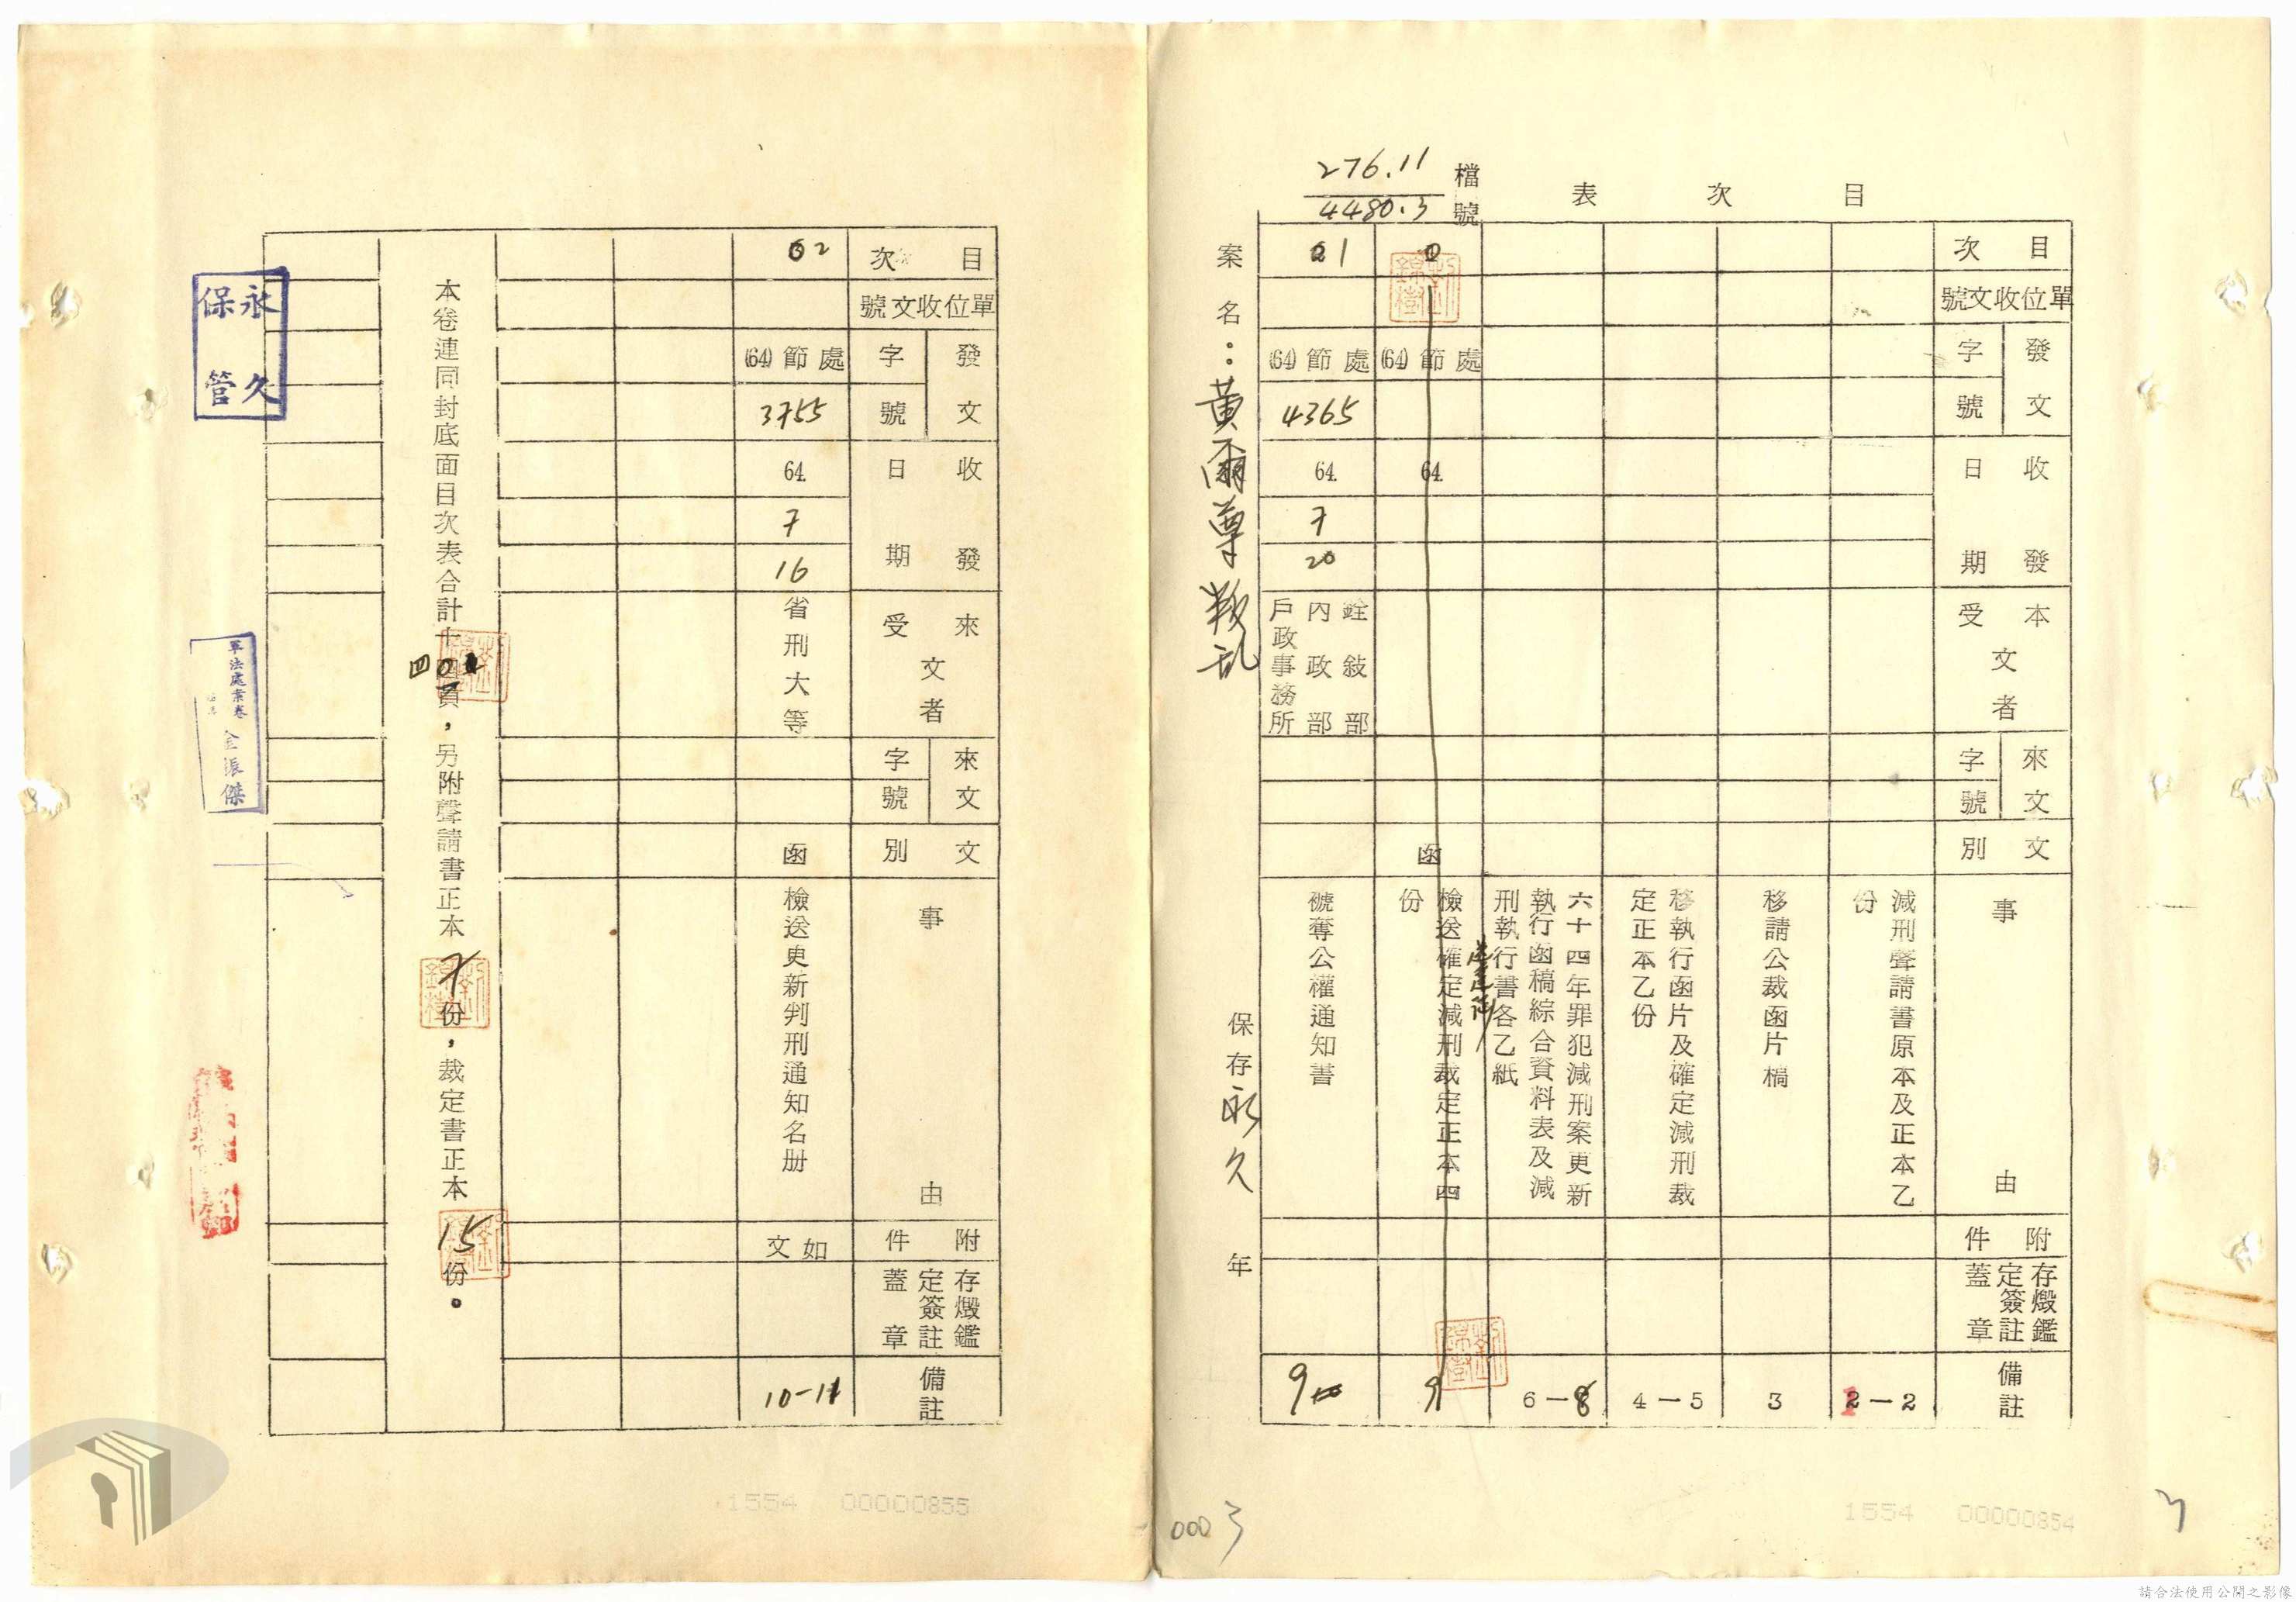 目次表
檔號
276.11
4480.3
案名：黃爾尊叛乱
保存永久年
目次
單位收文號
發文
字
號
收發日期
本文受者
來文
字
號
文別
事由
附件
存燬鑑定簽註蓋章
備註
減刑聲請書原本及正本乙份
2—2
移請公裁函片稿
3
移執行函片及確定減刑裁定正本乙份
4—5
六十四年罪犯減刑案更新執行函稿綜合資料表及減刑執行書各乙紙
6—8
0
(64)節處
64.
函
檢送確定減刑裁定正本四份
9
01
(64)節處
4365
64.
7
20
銓敍部
內政部
戶政事務所
褫奪公權通知書
9
0003
3
1554 00000854
目次
單位收文號
發文
字
號
收發日期
來文受者
來文
字
號
文別
事由
附件
存燬鑑定簽註蓋章
備註
02
(64)節處
3755
64.
7
16
省刑大等
函
檢送更新判刑通知名册
如文
10-11
本卷連同封底面目次表合計十四頁，另附聲請書正本7份，裁定書正本15份。
永久保管
軍法處案卷
金振傑
1554 00000855
請合法使用公開之影像